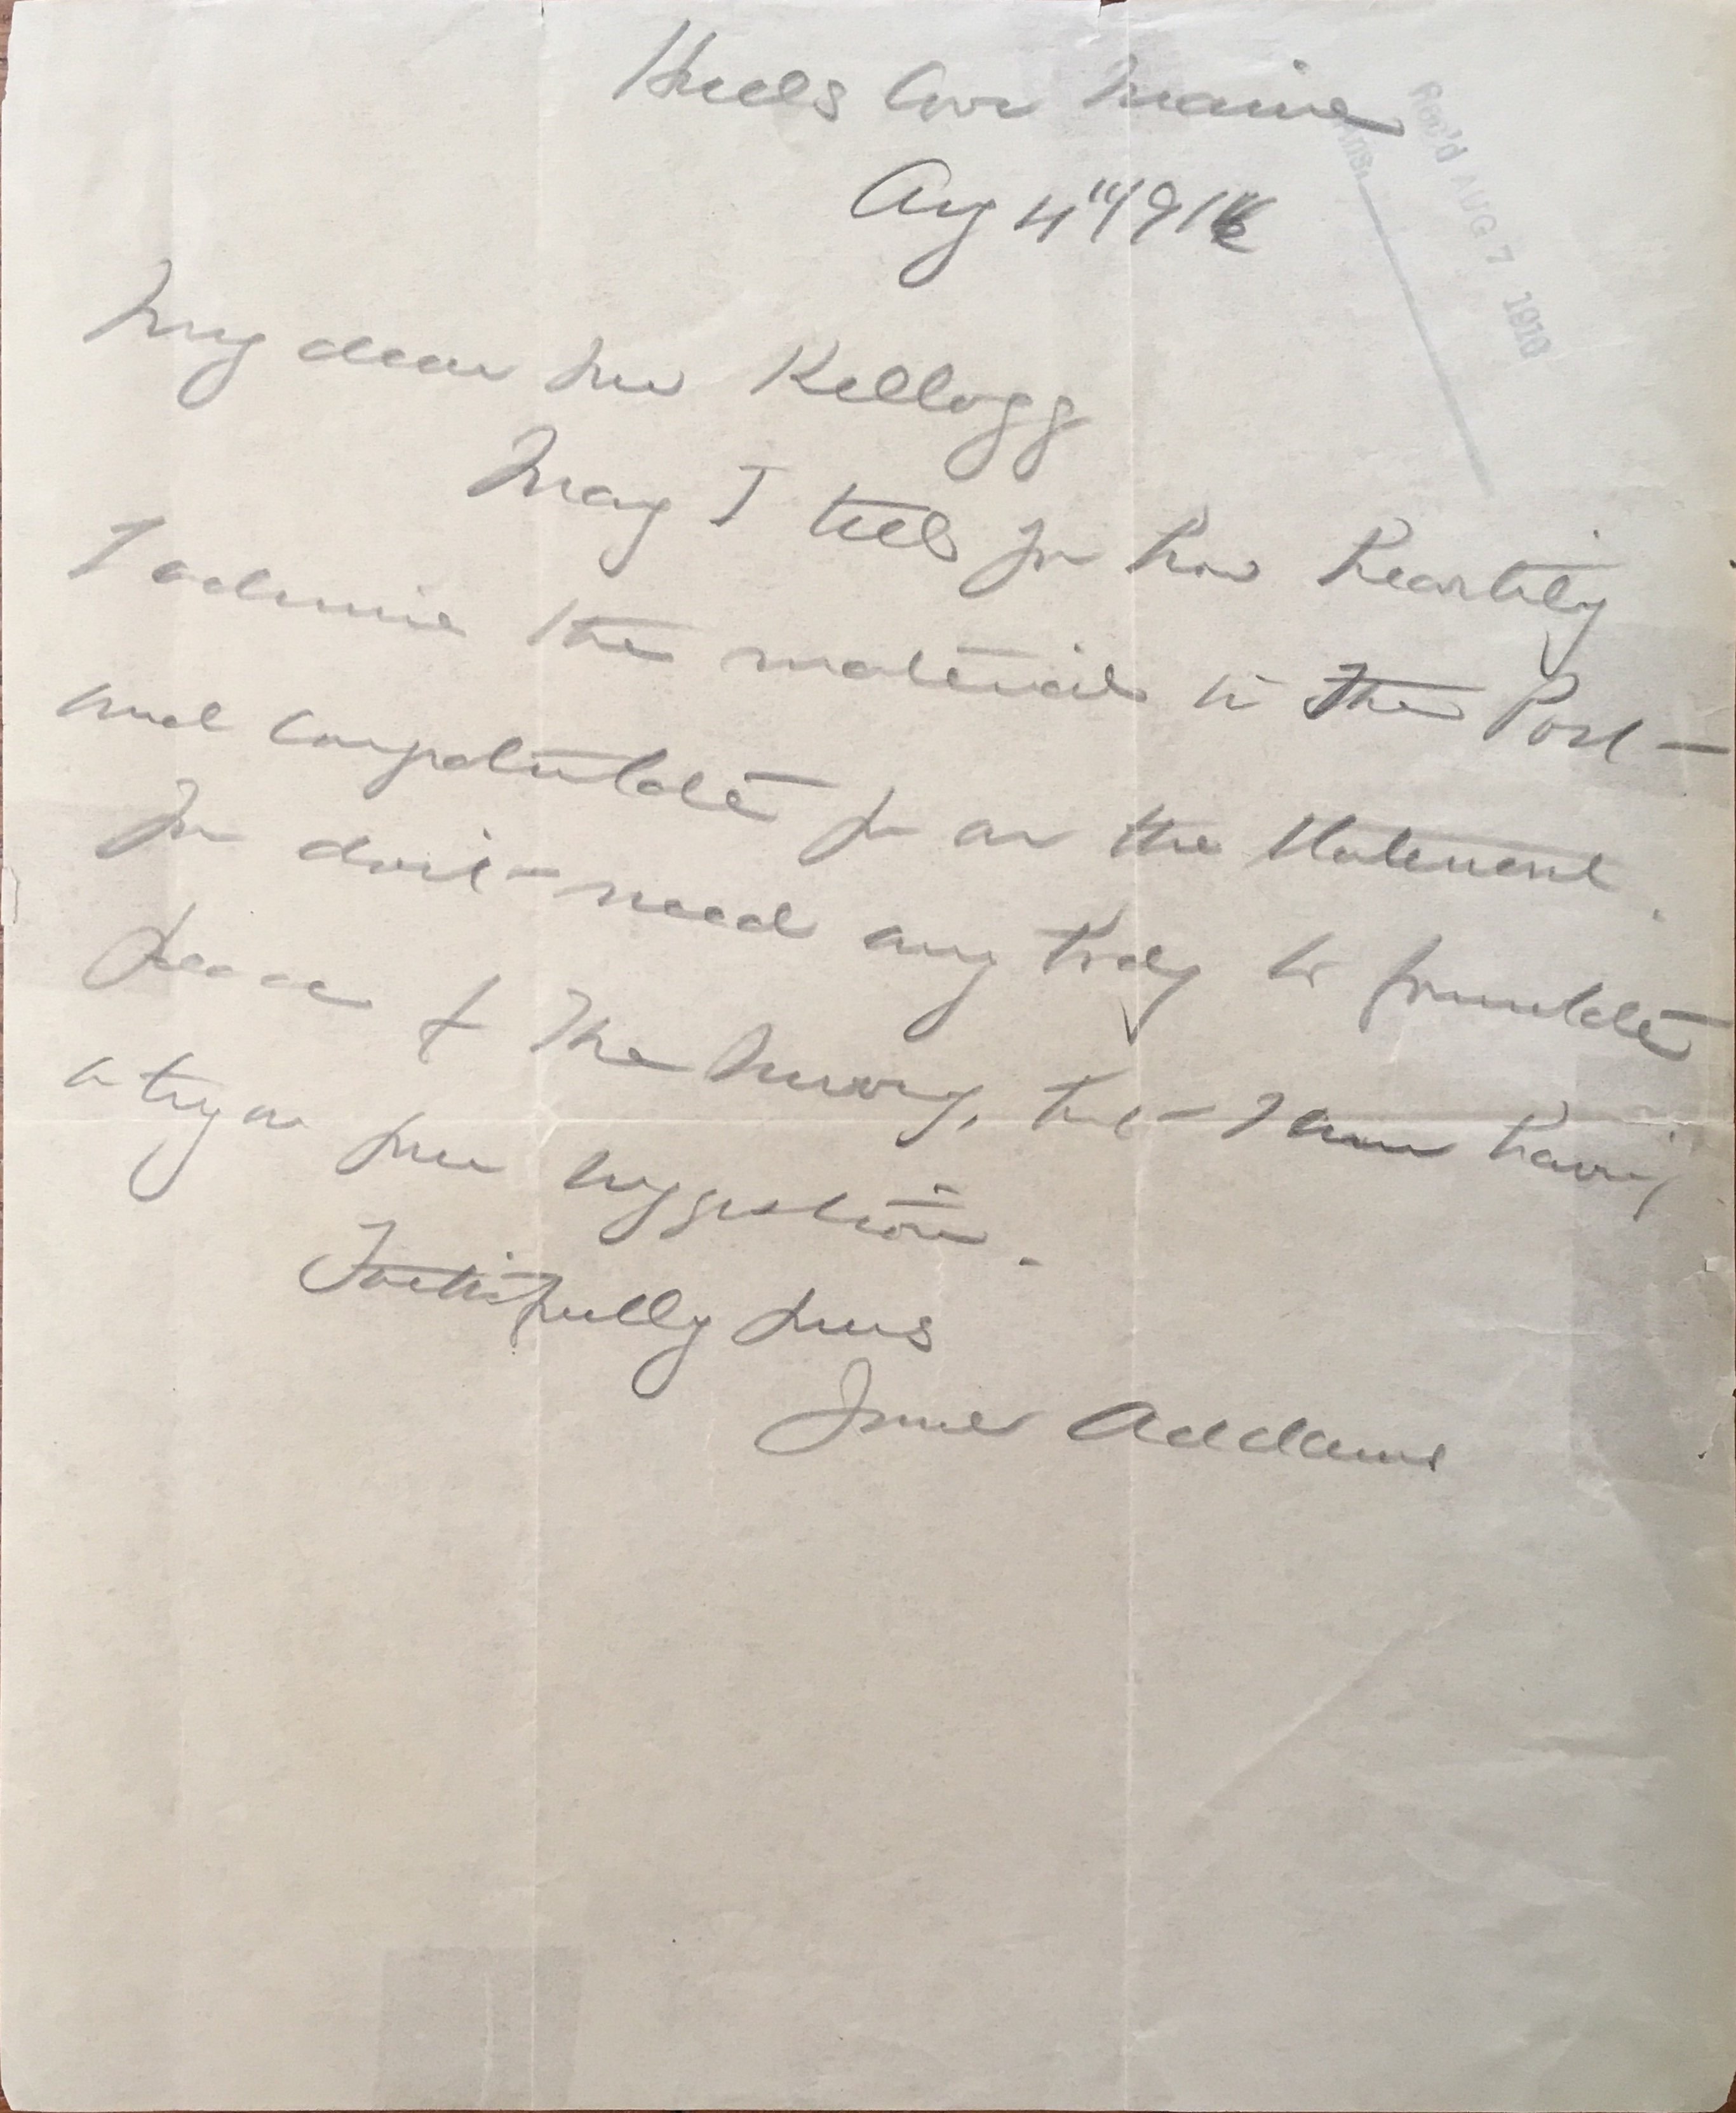 Hulls Cove Maine
Rec'd AUG 7 1916
Ans.
Aug 4" 1916
My dear Mr Kellogg
May I tell you how heartily
I admire the material in the Post -
and congratulate you on the statement.
You don't need any body to formulate
peace for The Survey, but I am having
a try on your suggestion.
Faithfully yours
Jane Addams